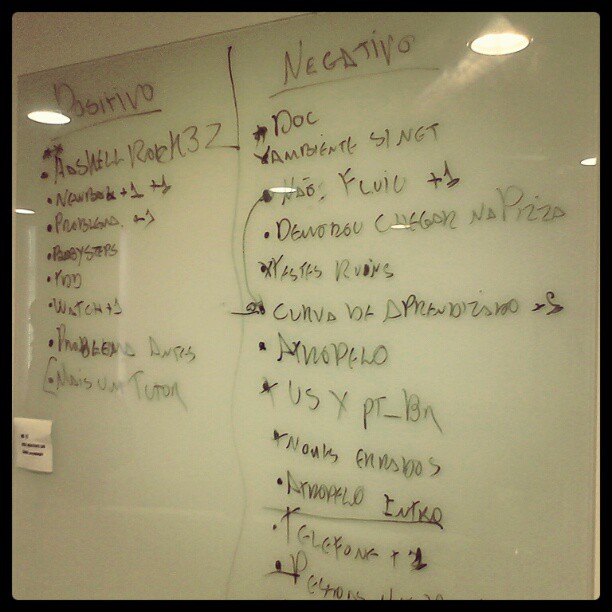 Positivo
NewBDe +1 +1
Problema +1
BabySteps
TDD
Watch +1
Problema Antes
Mais um Tutor
Negativo
Doc
Ambiente SINET
Não Fluiu +1
Demorou chegar na Pizza
Testes Ruins
Curva de Aprendizado +5
Atropelo
US X pt_Br
Nomes Errados
Atropelo Intro
Telefone +1